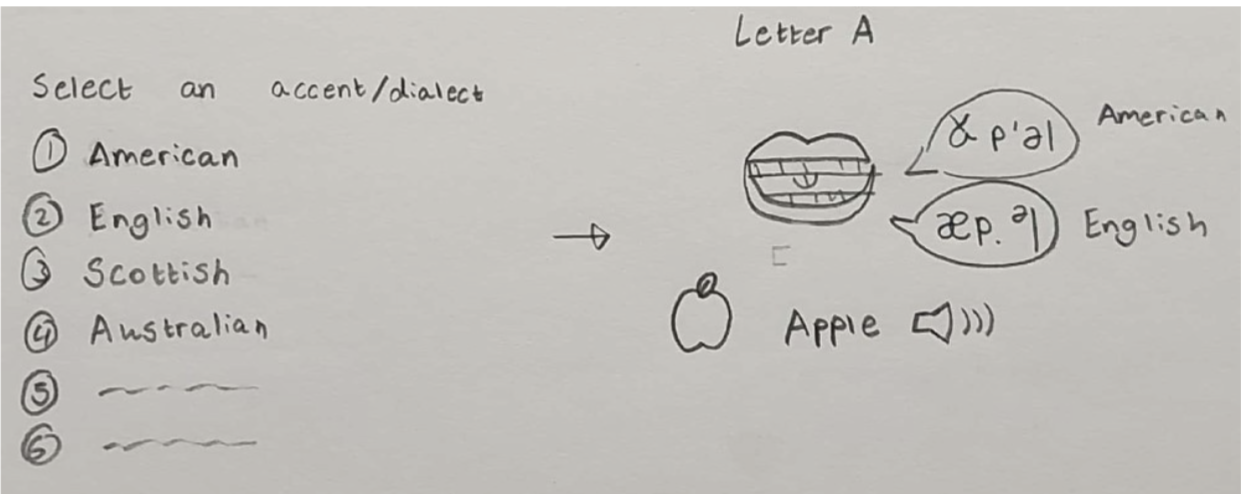 Select an accent/dialect
① American
② English
③ Scottish
④ Australian
⑤
⑥
Letter A
American
æp.əl
English
Apple